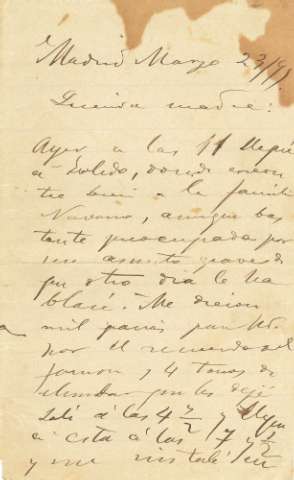 Madrid Marzo 23/95
Querida madre:
Ayer a las 11 llegué
a Toledo, donde encon
tré bien a la familia
Navarro, aunque bas
tante preocupada por
un asunto grave de
que otro dia le ha
blaré. Me dieron
mil para
por el recuerdo del
jamon y 4 de
que les dejé
Salí á las 4 1/2 y llegué
á esta á las 7 y 1/2
y me instalé en